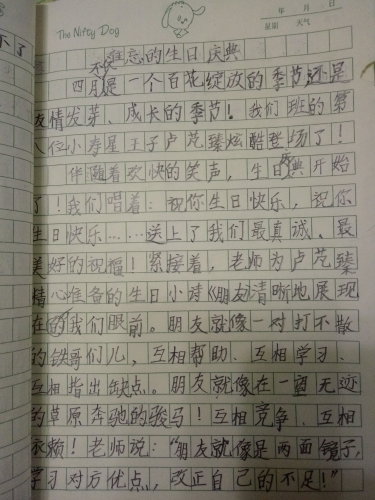 The Nifty Dog
年 月 日
星期 天气
难忘的生日庆典
四月不仅是一个百花绽放的季节,还是
友情发芽、成长的季节!我们班的第
八位小寿星王子卢芃臻炫酷登场了!
伴随着欢快的笑声,生日庆典开始
了!我们唱着:祝你生日快乐,祝你
生日快乐……送上了我们最真诚、最
美好的祝福!紧接着,老师为卢芃臻
精心准备的生日小诗《朋友》清晰地展现
在的我们眼前。朋友就像一对打不散
的铁哥们儿,互相帮助、互相学习、
互相指出缺点。朋友就像在一望无迹
的草原奔驰的骏马!互相竞争、互相
依赖!老师说:“朋友就像是两面镜子,
学习对方优点,改正自己的不足!”